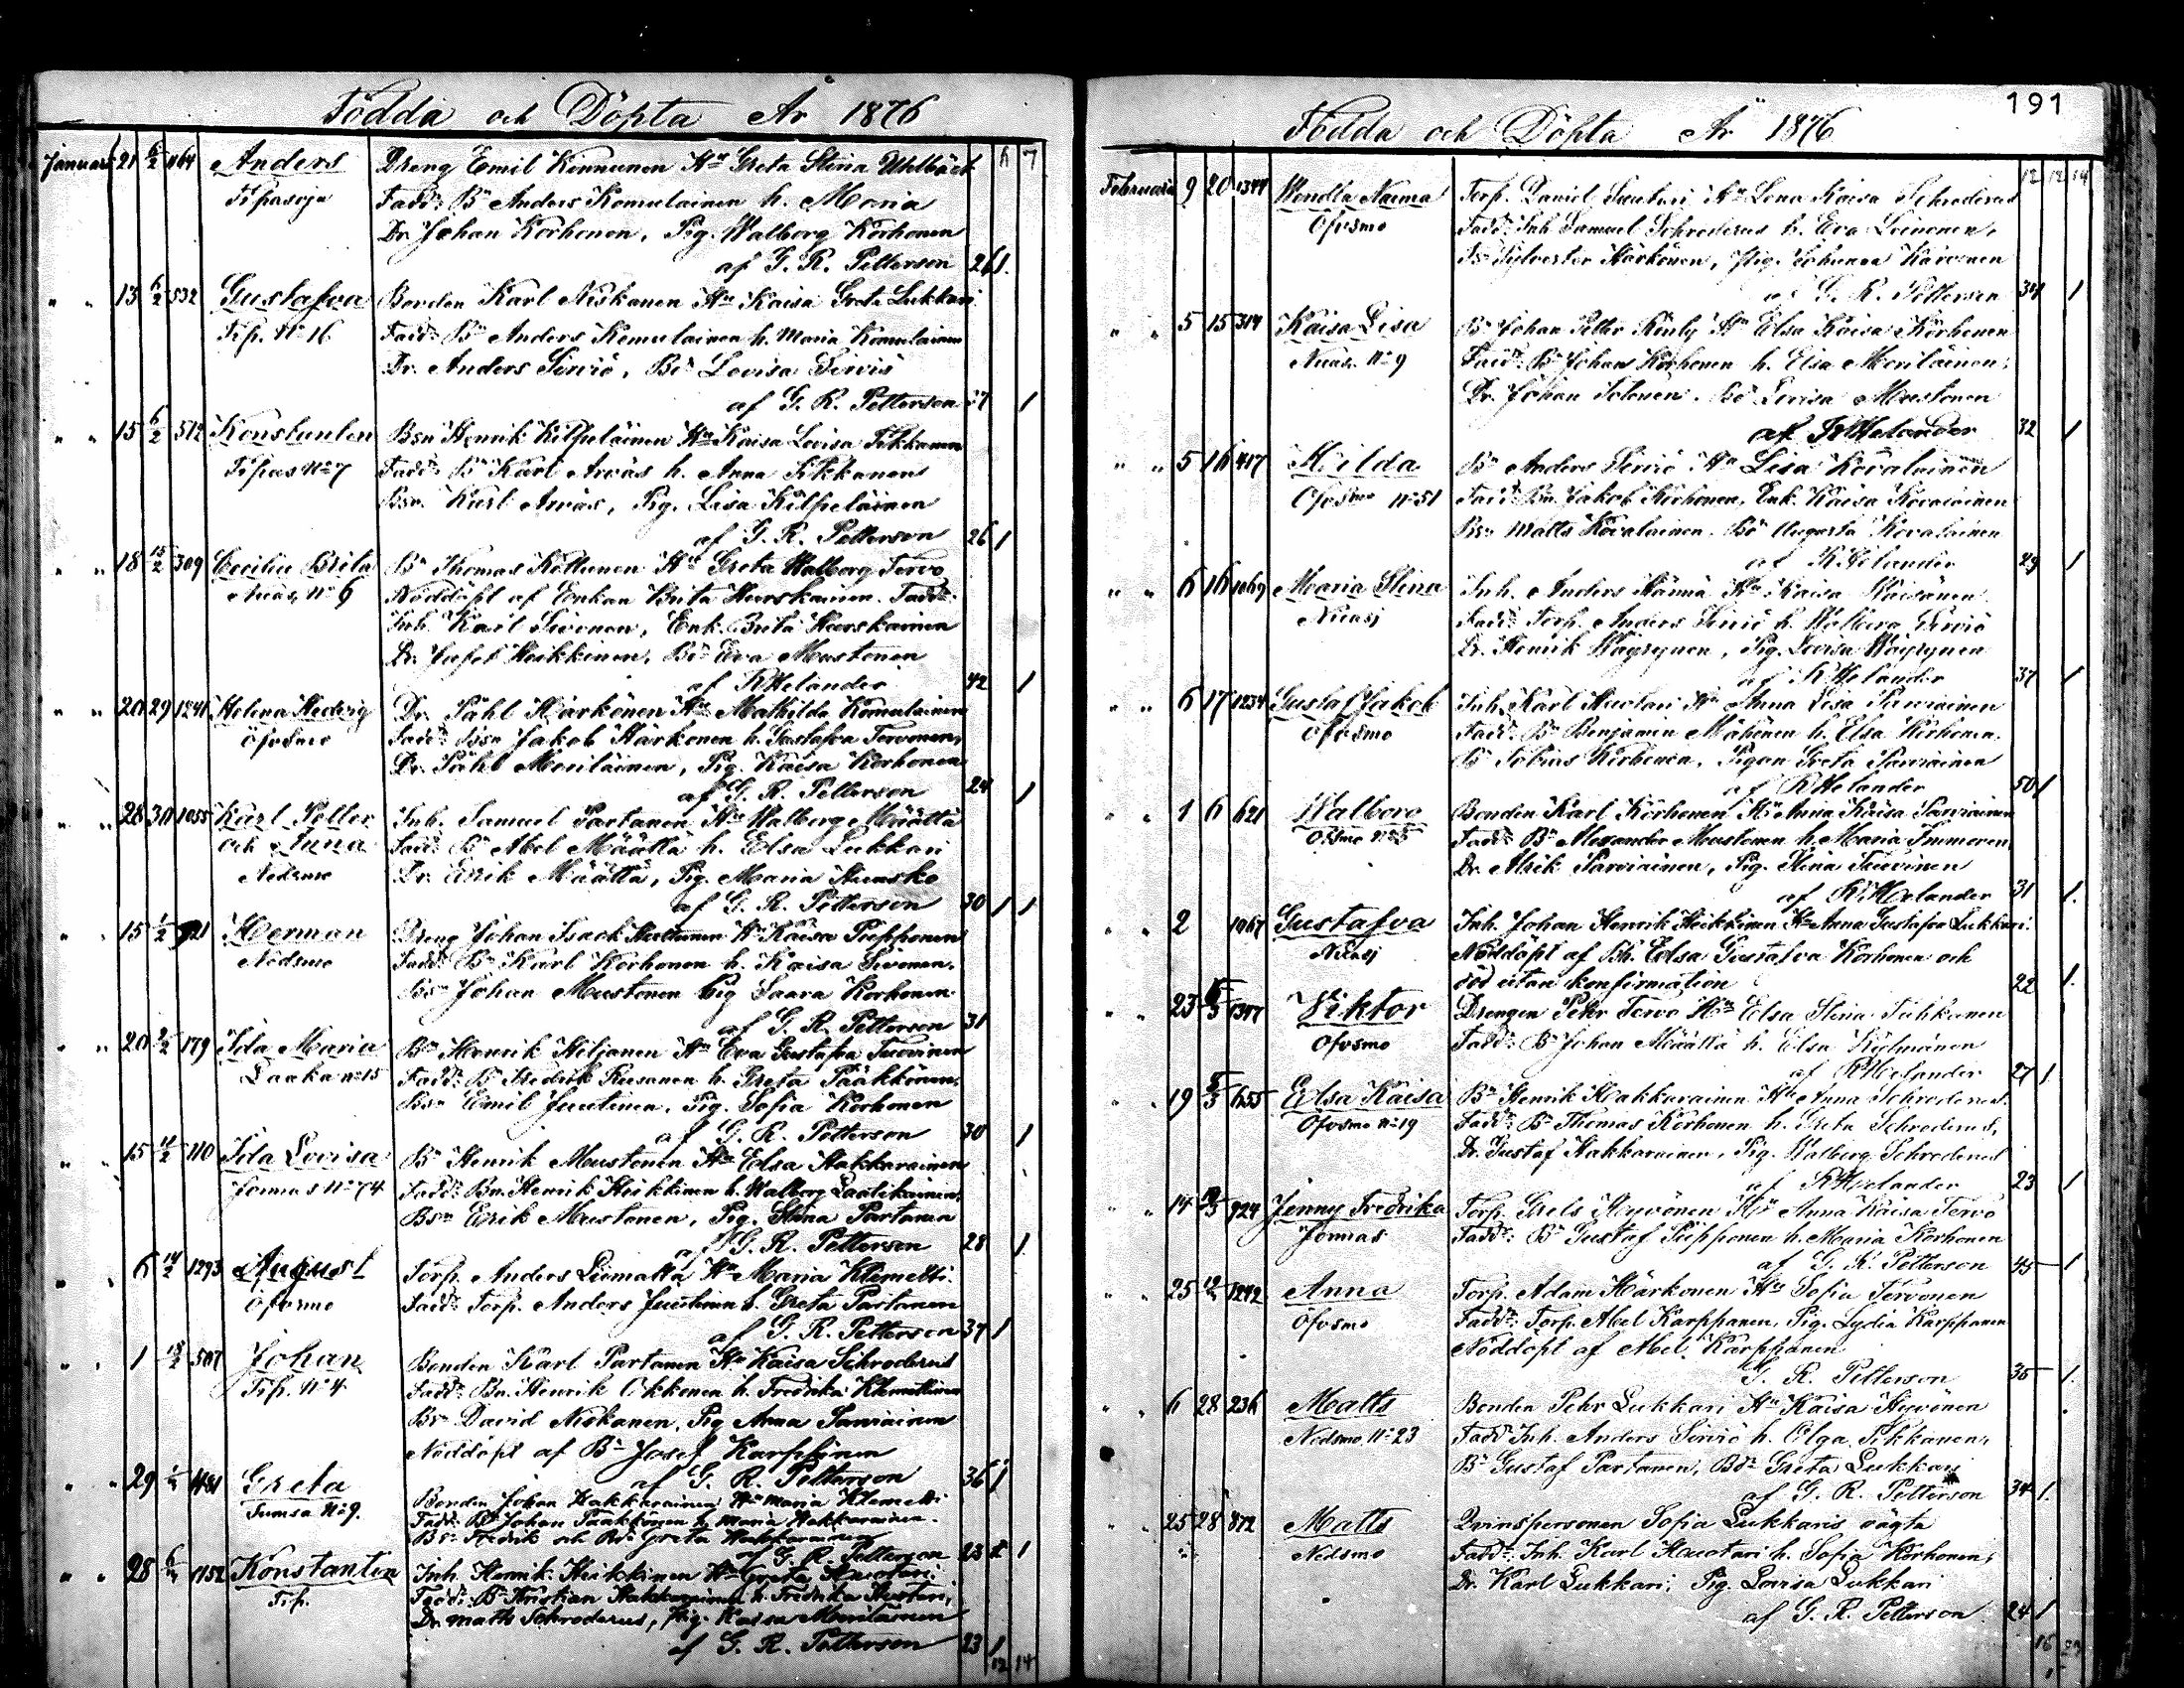 Födda och Döpta År 1876
Januari 21 6/2 1164 Anders Dreng Emil Kinnunen Hu Greta Stina
Tipasoja Fadd: Bn Anders Komulainen h. Maria
Dr. Johan Korhonen, Pig. Walborg Korhonen
af G. R. Petterson 26 1.
" " 13 6/2 532 Gustafva Bonden Karl Niskanen Hu Kaisa Greta Lukkari
Tip. No 16 Fadd: Bn Anders Komulainen h. Maria Komulainen
Dr. Anders Sirviö, Bd Lovisa Sirviö
af G. R. Petterson 27 1
" " 15 6/2 572 Konstantin Bsn Henrik Kilpeläinen Hu Kaisa Lovisa Pikkanen
Tipas No 7 Fadd: Bn Karl Arväs h. Anna Pikkanen
Bsn. Karl Arväs, Pig. Lisa Kilpeläinen
af G. R. Petterson 26 1
" " 18 15/2 309 Cecilia Brita Bn Thomas Kettunen Hu Greta Walborg Tervo
Nuas, No 6 Nöddöpt af Enkan Brita Hurskainen. Fadd:
Inh. Karl Sivonen, Enk. Brita Hurskainen
Dr. Jafet Heikkinen, Bd Eva Mustonen
af R Helander 42 1
" " 20 29 1241 Helena Hedvig Dr. Påhl Härkönen Hu Mathilda Komulainen
Öfvsmo Fadd: Bsn Jakob Härkönen h. Gustafva Tervonen,
Dr. Påhl Moriläinen, Pig. Kaisa Korhonen
af G. R. Petterson 24 1
" " 28 30 1055 Karl Petter Inh. Samuel Partanen Hu Walborg Määttä
och Anna Fadd: Bn Abel Määttä h. Elsa Lukkari
Nedsmo Dr. Erik Määttä, Pig. Maria
af G. R. Petterson 30 1 1
" " 15 1/2 921 Herman Dreng Johan Isack Huttunen Hu Kaisa Piipponen
Nedsmo Fadd: Bn Karl Korhonen h. Kaisa Sivonen.
Bsn Johan Mustonen Pig Saara Korhonen
af G. R. Petterson 31
" " 20 2/2 179 Ida Maria Bn Henrik Hiljanen Hu Eva Gustafva Tuovinen
Laaka No 15 Fadd: Bn Fredrik Kusanen h. Greta Pääkkönen,
Bsn Emil Juntunen, Pig. Sofia Korhonen
af G. R. Petterson 30 1
" " 15 4/2 110 Ida Lovisa Bn Henrik Mustonen Hu Elsa Hakkarainen
Jormas No 74 Fadd: Bn. Henrik Heikkinen h. Walborg Laatikainen,
Bsn Erik Mustonen, Pig. Stina Partanen
af G. R. Petterson 28 1
" " 6 14/2 1293 August Torp. Anders Liimatta Hu Maria Klemetti
Öfvsmo Fadd: Torp. Anders Juntunen h. Greta Partanen
af G. R. Petterson 37 1
" " 1 18/2 507 Johan Bonden Karl Partanen Hu Kaisa Schroderus
Tip. No 4 Fadd: Bn. Henrik Okkonen h. Fredrika Klemettinen
Bsn David Niskanen, Pig Anna Parviainen
Nöddöpt af Bn Josef Karppinen
af G. R. Petterson 36 1
" " 29 Greta Bonden Johan Hakkarainen Hu Maria Klemetti
Tumsa No 9. Fadd: Bn Johan Pääkkönen h. Maria Hakkarainen.
Bsn Fredrik och Bd Greta Hakkarainen
af G. R. Petterson 23 1
" " 28 1152 Konstantin Inh. Henrik Heikkinen Hu Greta Huotari
Tip. Fadd: Bn Kristian Hakkarainen h. Fredrika Huotari,
Dr. Math Schroderus, Pig. Kaisa Moriläinen
af G. R. Petterson 23 1
12 14
191
Födda och Döpta År 1876
12 12 14
Februari 9 20 1344 Wendla Naima Torp. Daniel Huotari Hu Lena Kaisa Schroderus
Öfvsmo Fadd: Inh Samuel Schroderus h. Eva Leinonen,
Bsn Sylvester Härkönen, Pig. Johanna Karvonen
af G. R. Petterson 34 1
" " 5 15 314 Kaisa Lisa Bn Johan Petter Hu Elsa Kaisa Korhonen
Nuas. No 9 Fadd: Bn Johan Korhonen h. Elsa Moriläinen,
Dr. Johan Tolonen. Bd Lovisa Mustonen
af R Helander 32 1
" " 5 16 417 Hilda Bn Anders Sirviö Hu Lisa Kovalainen
Öfvsmo No 51 Fadd: Bn. Jakob Korhonen, Enk. Kaisa Kovalainen
Bsn Matts Kovalainen. Bd Augusta Kovalainen
af R Helander 29 1
" " 6 16 1069 Maria Stina Inh. Anders Hännä Hu Kaisa Räisänen
Nuasj Fadd: Torp. Anders Sirviö h. Walborg Sirviö
Dr. Henrik Väyrynen, Pig. Lovisa Väyrynen
af R Helander 37 1
" " 6 17 1234 Gustaf Jakob Inh. Karl Huotari Hu Anna Lisa Parviainen
Öfvsmo Fadd: Bn Benjamin Mähönen h. Elsa Korhonen.
Bn Tobias Korhonen, Pigan Greta Parviainen
af R Helander 50 1
" " 1 6 621 Walborg Bonden Karl Korhonen Hu Anna Kaisa Parviainen
Öfvsmo Fadd: Bn Alexander Mustonen h. Maria Immonen,
Dr. Alrik Parviainen, Pig. Stina Tuovinen
af R Helander 31 1.
" " 2 1067 Gustafva Inh. Johan Henrik Heikkinen Hu Anna Gustafva Lukkari.
Nuasj Nöddöpt af Bh. Elsa Gustafva Korhonen och
död utan konfirmation 22 1.
" " 23 1307 Viktor Drengen Pehr Tervo Hu Elsa Stina Tuhkanen
Öfvsmo Fadd: Bn Johan Määttä h. Elsa Kylmänen
af R Helander 27 1
" " 19 5/3 655 Elsa Kaisa Bn Henrik Hakkarainen Hu Anna Schroderus.
Öfvsmo No 19 Fadd: Bn Thomas Korhonen h. Greta Schroderus,
Dr. Gustaf Hakkarainen, Pig. Walborg Schroderus
af R Helander 23 1
" " 14 924 Jenny Fredrika Torp. Grels Hyvönen Hu Anna Kaisa Tervo
Jormas Fadd: Bn Gustaf Piipponen h. Maria Korhonen
af G. R. Petterson 45 1
" " 25 1242 Anna Torp. Adam Härkönen Hu Sofia Tervonen
Öfvsmo Fadd: Torp. Abel Karppanen, Pig. Lydia Karppanen
Nöddöpt af Abel Karppanen
G. R. Petterson 35 1.
" " 6 28 236 Matts Bonden Pehr Lukkari Hu Kaisa Hyvönen
Nedsmo No 23 Fadd: Inh. Anders Sirviö h. Olga Pikkanen,
Bn Gustaf Partanen, Bd Greta Lukkari
af G. R. Petterson 34 1.
" " 25 28 872 Matts Qvinspersonen Sofia Lukkaris oägta
Nedsmo Fadd: Inh. Karl Huotari h. Sofia Korhonen,
Dr. Karl Lukkari, Pig. Lovisa Lukkari
af G. R. Petterson 24 1
16